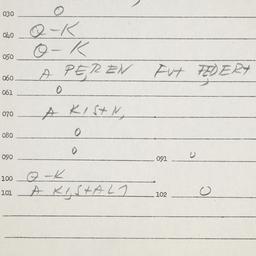 030 O
040 Q-K
050 Q-K
060 A PE,REN FUT FEDERT
061 O
070 A KISTN,
080 O
090 O 091 U
100 Q-K
101 A KI,STAL1 102 U